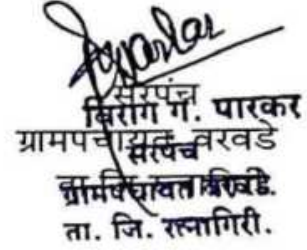 सरपंच
विराग ग. पारकर
ग्रामपंचायत वरवडे
सरपंच
ग्रामपंचायत वरवडे.
ता. जि. रत्नागिरी.